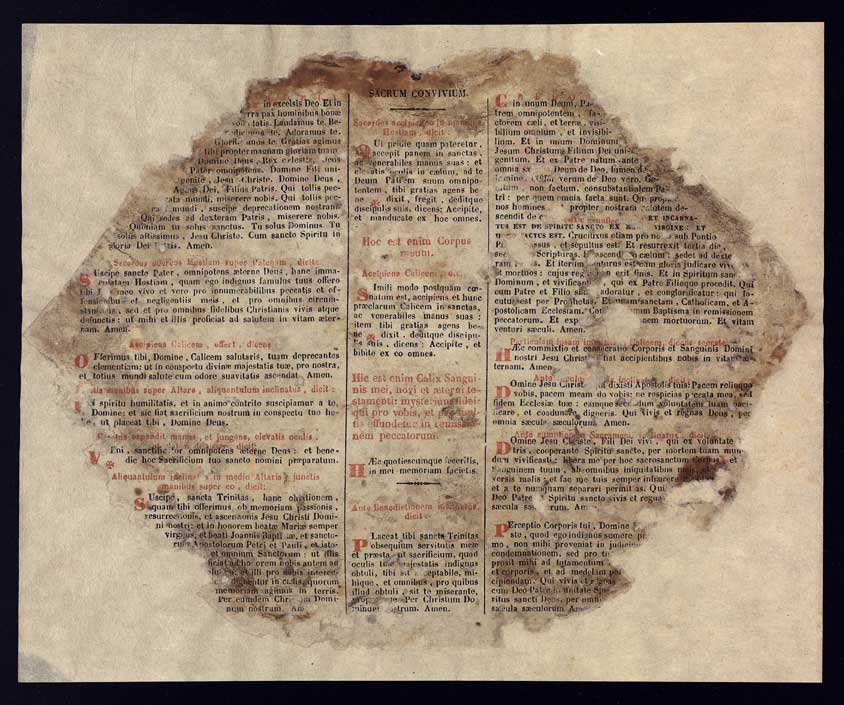 in excelsis Deo Et in
pax hominibus bonæ
Laudamus te. Be-
te. Adoramus te.
Gratias agimus
tibi propter magnam gloriam tuam
Domine Deus, Rex cœlestis,
Pater omnipotens. Domine Fili uni-
genite, Jesu Christe. Domine Deus,
Agnus Dei, Filius Patris. Qui tollis pec-
cata mundi, miserere nobis. Qui tollis pec-
mundi, suscipe deprecationem nostram
Qui sedes ad dexteram Patris, miserere nobis.
Quoniam tu solus sanctus. Tu solus Dominus. Tu
solus altissimus, Jesu Christe. Cum sancto Spiritu in
gloria Dei Patris. Amen.
Sacerdos accipiens Hostiam super Patenam, dicit:
Suscipe sancte Pater, omnipotens æterne Deus, hanc imma-
culatam Hostiam, quam ego indignus famulus tuus offero
tibi Deo meo vivo et vero pro innumerabilibus peccatis et of-
fensionibus et negligentiis meis, et pro omnibus circum-
stantibus, sed et pro omnibus fidelibus Christianis vivis atque
defunctis: ut mihi et illis proficiat ad salutem in vitam æter-
nam. Amen.
Accipiens Calicem, offert, dicens
Offerimus tibi, Domine, Calicem salutaris, tuam deprecantes
clementiam: ut in conspectu divinæ majestatis tuæ, pro nostra,
et totius mundi salute cum odore suavitatis ascendat. Amen.
manibus super Altare, aliquantulum inclinatus, dicit:
In spiritu humilitatis, et in animo contrito suscipiamur a te,
Domine: et sic fiat sacrificium nostrum in conspectu tuo ho-
die, ut placeat tibi, Domine Deus.
expandit manus, et jungens, elevatis oculis,
Veni, sanctificator omnipotens æterne Deus: et bene-
dic hoc Sacrificium tuo sancto nomini præparatum.
Aliquantulum inclinatus in medio Altaris junctis
manibus super eo, dicit:
Suscipe, sancta Trinitas, hanc oblationem,
quam tibi offerimus ob memoriam passionis,
resurrectionis, et ascensionis Jesu Christi Domi-
ni nostri: et in honorem beatæ Mariæ semper
virginis, et beati Joannis Baptistæ, et sancto-
rum Apostolorum Petri et Pauli, et isto-
rum et omnium Sanctorum: ut illis
proficiat ad honorem nobis autem ad
salutem: et illi pro nobis interce-
dere dignentur in cœlis quorum
memoriam agimus in terris.
Per eumdem Christum Domi-
num nostrum. Amen
SACRUM CONVIVIUM.
Sacerdos accipiens in manibus
Hostiam, dicit:
Qui pridie quam pateretur,
accepit panem in sanctas,
ac venerabiles manus suas: et
elevatis oculis in cœlum, ad te
Deum Patrem suum omnipo-
tentem, tibi gratias agens be-
ne dixit, fregit, deditque
discipulis suis, dicens: Accipite,
et manducate ex hoc omnes.
Hoc est enim Corpus
meum.
Accipiens Calicem, dicit
Simili modo postquam cœ-
natum est, accipiens et hunc
præclarum Calicem in sanctas,
ac venerabiles manus suas:
item tibi gratias agens be-
ne dixit, deditque discipu-
lis suis, dicens: Accipite, et
bibite ex eo omnes.
Hic est enim Calix Sangui-
nis mei, novi et æterni te-
stamenti: mysterium fidei
qui pro vobis, et pro mul-
tis effundetur in remis-
nem peccatorum.
Hæc quotiescumque feceritis,
in mei memoriam facietis.
Ante Benedictionem inclinatus,
dicit
Placeat tibi sancta Trinitas
obsequium servitutis meæ
et præsta, ut sacrificium, quod
oculis tuæ majestatis indignus
obtuli, tibi sit acceptabile, mi-
hique, et omnibus, pro quibus
illud obtuli, sit te miserante,
Per Christum Do-
minum nostrum. Amen.
in unum Deum, Pa-
trem omnipotentem, fa-
ctorem cæli, et terræ, visi-
bilium omnium, et invisibi-
lium. Et in unum Dominum
Jesum Christum Filium Dei uni-
genitum. Et ex Patre natum ante
omnia sæ Deum de Deo, lumen de
verum de Deo vero. Ge-
non factum, consubstantialem Pa-
tri: per quem omnia facta sunt. Qui
nos homines, propter nostram salutem de-
scendit de
ET INCARNA-
TUS EST DE SPIRITU SANCTO EX VIRGINE: ET
FACTUS EST. Crucifixus etiam pro nobis sub Pontio
et sepultus est. Et resurrexit tertia die,
Scripturas. ascend cœlum: sedet ad dexte-
Patris. Et iterum venturus est cum gloria judicare vivos
et mortuos: cujus regni erit finis. Et in Spiritum sanctum
Dominum, et vivificantem, qui ex Patre Filioque procedit. Qui
cum Patre et Filio adoratur, et conglorificatur: qui lo-
cutus est per Prophetas. Et unam sanctam, Catholicam, et A-
postolicam Ecclesiam. Baptisma in remissionem
peccatorum. Et exp mortuorum. Et vitam
venturi sæculi. Amen.
Hæc commixtio et consecratio Corporis et Sanguinis Domini
nostri Jesu Christi fiat accipientibus nobis in vitam æ-
ternam. Amen.
Domine Jesu Christe dixisti Apostolis tuis: Pacem relinquo
vobis, pacem meam do vobis: ne respicias peccata mea, sed
fidem Ecclesiæ tuæ: eamque secundum voluntatem tuam paci-
ficare, et coadunare digneris. Qui vivis et regnas Deus, per
omnia sæcula sæculorum. Amen.
Ante sumptionem Sacramenti, inclinatus, dicit:
Domine Jesu Christe, Fili Dei vivi, qui ex voluntate
Patris, cooperante Spiritu sancto, per mortem tuam mun-
dum vivificasti: libera me per hoc sacrosanctum Corpus et
Sanguinem tuum ab omnibus iniquitatibus
versis malis: et fac me tuis semper inhærere
et a te numquam separari permittas. Qui
Deo Patre Spiritu sancto vivis et regnas
sæcula Amen.
Perceptio Corporis tui, Domine
quod ego indignus sumere
mo, non mihi proveniat in judicium
condemnationem, sed pro
prosit mihi ad tutamentum
et corporis, et ad medelam per-
cipiendam. Qui vivis et regnas
cum Deo Patre in unitate Spi-
ritus sancti Deus, per omnia
sæcula sæculorum. Amen